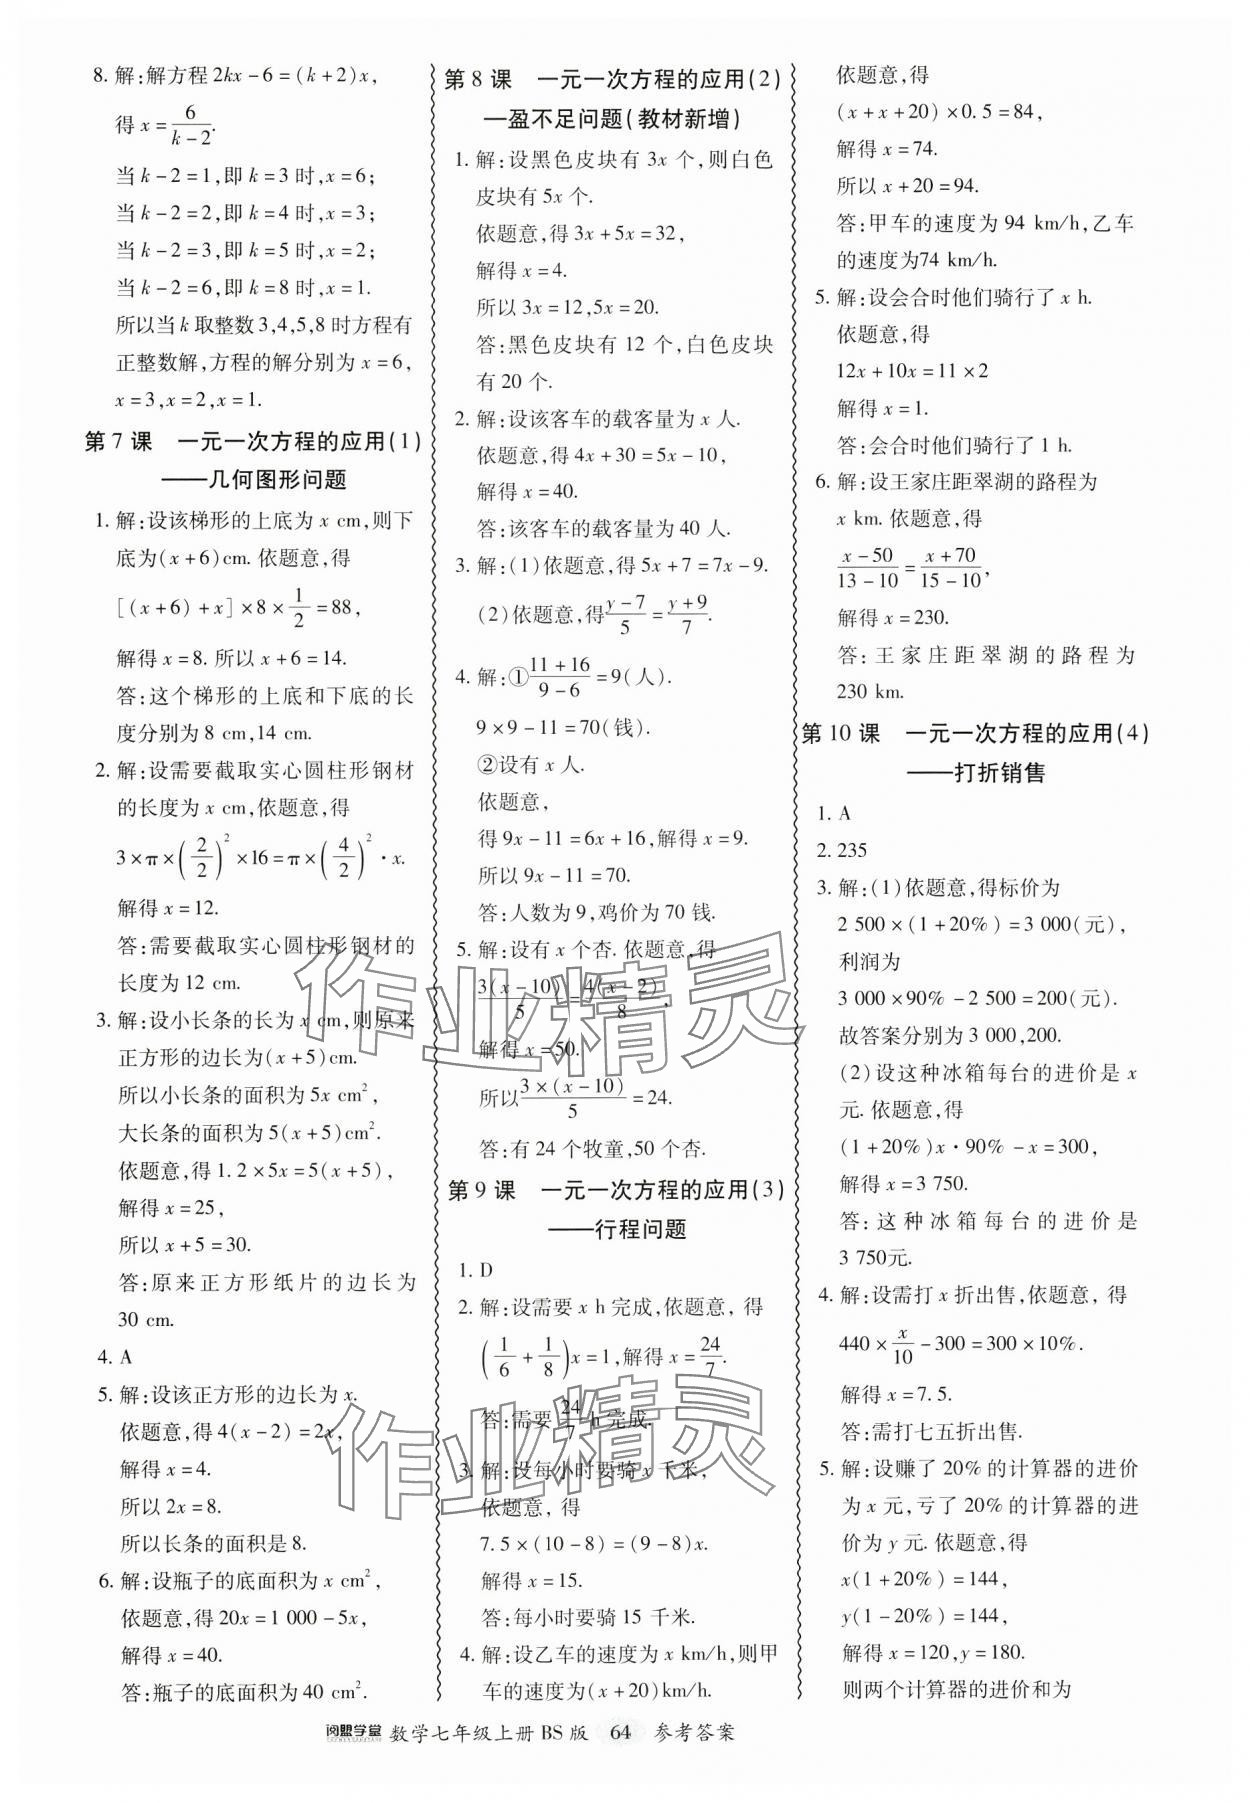 8. 解:解方程2kx-6=(k+2)x,
得 x=6/(k-2).
当 k-2=1,即 k=3 时,x=6;
当 k-2=2,即 k=4 时,x=3;
当 k-2=3,即 k=5 时,x=2;
当 k-2=6,即 k=8 时,x=1.
所以当 k 取整数 3,4,5,8 时方程有
正整数解,方程的解分别为 x=6,
x=3,x=2,x=1.
第 7 课 一元一次方程的应用(1)
——几何图形问题
1. 解:设该梯形的上底为 x cm,则下
底为(x+6)cm. 依题意,得
[(x+6)+x]×8×1/2=88,
解得 x=8. 所以 x+6=14.
答:这个梯形的上底和下底的长
度分别为 8 cm,14 cm.
2. 解:设需要截取实心圆柱形钢材
的长度为 x cm,依题意,得
3×π×(2/2)²×16=π×(4/2)²·x.
解得 x=12.
答:需要截取实心圆柱形钢材的
长度为 12 cm.
3. 解:设小长条的长为 x cm,则原来
正方形的边长为(x+5)cm.
所以小长条的面积为 5x cm²,
大长条的面积为 5(x+5)cm².
依题意,得 1.2×5x=5(x+5),
解得 x=25,
所以 x+5=30.
答:原来正方形纸片的边长为
30 cm.
4. A
5. 解:设该正方形的边长为 x.
依题意,得 4(x-2)=2x,
解得 x=4.
所以 2x=8.
所以长条的面积是 8.
6. 解:设瓶子的底面积为 x cm²,
依题意,得 20x=1 000-5x,
解得 x=40.
答:瓶子的底面积为 40 cm².
第 8 课 一元一次方程的应用(2)
—盈不足问题(教材新增)
1. 解:设黑色皮块有 3x 个,则白色
皮块有 5x 个.
依题意,得 3x+5x=32,
解得 x=4.
所以 3x=12,5x=20.
答:黑色皮块有 12 个,白色皮块
有 20 个.
2. 解:设该客车的载客量为 x 人.
依题意,得 4x+30=5x-10,
解得 x=40.
答:该客车的载客量为 40 人.
3. 解:(1)依题意,得 5x+7=7x-9.
(2)依题意,得(y-7)/5=(y+9)/7.
4. 解:①(11+16)/(9-6)=9(人).
9×9-11=70(钱).
②设有 x 人.
依题意,
得 9x-11=6x+16,解得 x=9.
所以 9x-11=70.
答:人数为 9,鸡价为 70 钱.
5. 解:设有 x 个杏. 依题意,得
3(x-10)/5=4(x-2)/8,
解得 x=50.
所以 3×(x-10)/5=24.
答:有 24 个牧童,50 个杏.
第 9 课 一元一次方程的应用(3)
——行程问题
1. D
2. 解:设需要 x h 完成,依题意, 得
(1/6+1/8)x=1,解得 x=24/7.
答:需要 24/7 h 完成.
3. 解:设每小时要骑 x 千米,
依题意, 得
7.5×(10-8)=(9-8)x.
解得 x=15.
答:每小时要骑 15 千米.
4. 解:设乙车的速度为 x km/h,则甲
车的速度为(x+20)km/h.
依题意,得
(x+x+20)×0.5=84,
解得 x=74.
所以 x+20=94.
答:甲车的速度为 94 km/h,乙车
的速度为74 km/h.
5. 解:设会合时他们骑行了 x h.
依题意,得
12x+10x=11×2
解得 x=1.
答:会合时他们骑行了 1 h.
6. 解:设王家庄距翠湖的路程为
x km. 依题意,得
(x-50)/(13-10)=(x+70)/(15-10),
解得 x=230.
答:王家庄距翠湖的路程为
230 km.
第 10 课 一元一次方程的应用(4)
——打折销售
1. A
2. 235
3. 解:(1)依题意,得标价为
2 500×(1+20%)=3 000(元),
利润为
3 000×90%-2 500=200(元).
故答案分别为 3 000,200.
(2)设这种冰箱每台的进价是 x
元. 依题意,得
(1+20%)x·90%-x=300,
解得 x=3 750.
答:这种冰箱每台的进价是
3 750元.
4. 解:设需打 x 折出售,依题意, 得
440×x/10-300=300×10%.
解得 x=7.5.
答:需打七五折出售.
5. 解:设赚了 20%的计算器的进价
为 x 元,亏了 20%的计算器的进
价为 y 元. 依题意,得
x(1+20%)=144,
y(1-20%)=144,
解得 x=120,y=180.
则两个计算器的进价和为
阅盟学堂 数学七年级上册 BS 版 64 参考答案
作业精灵
作业精灵